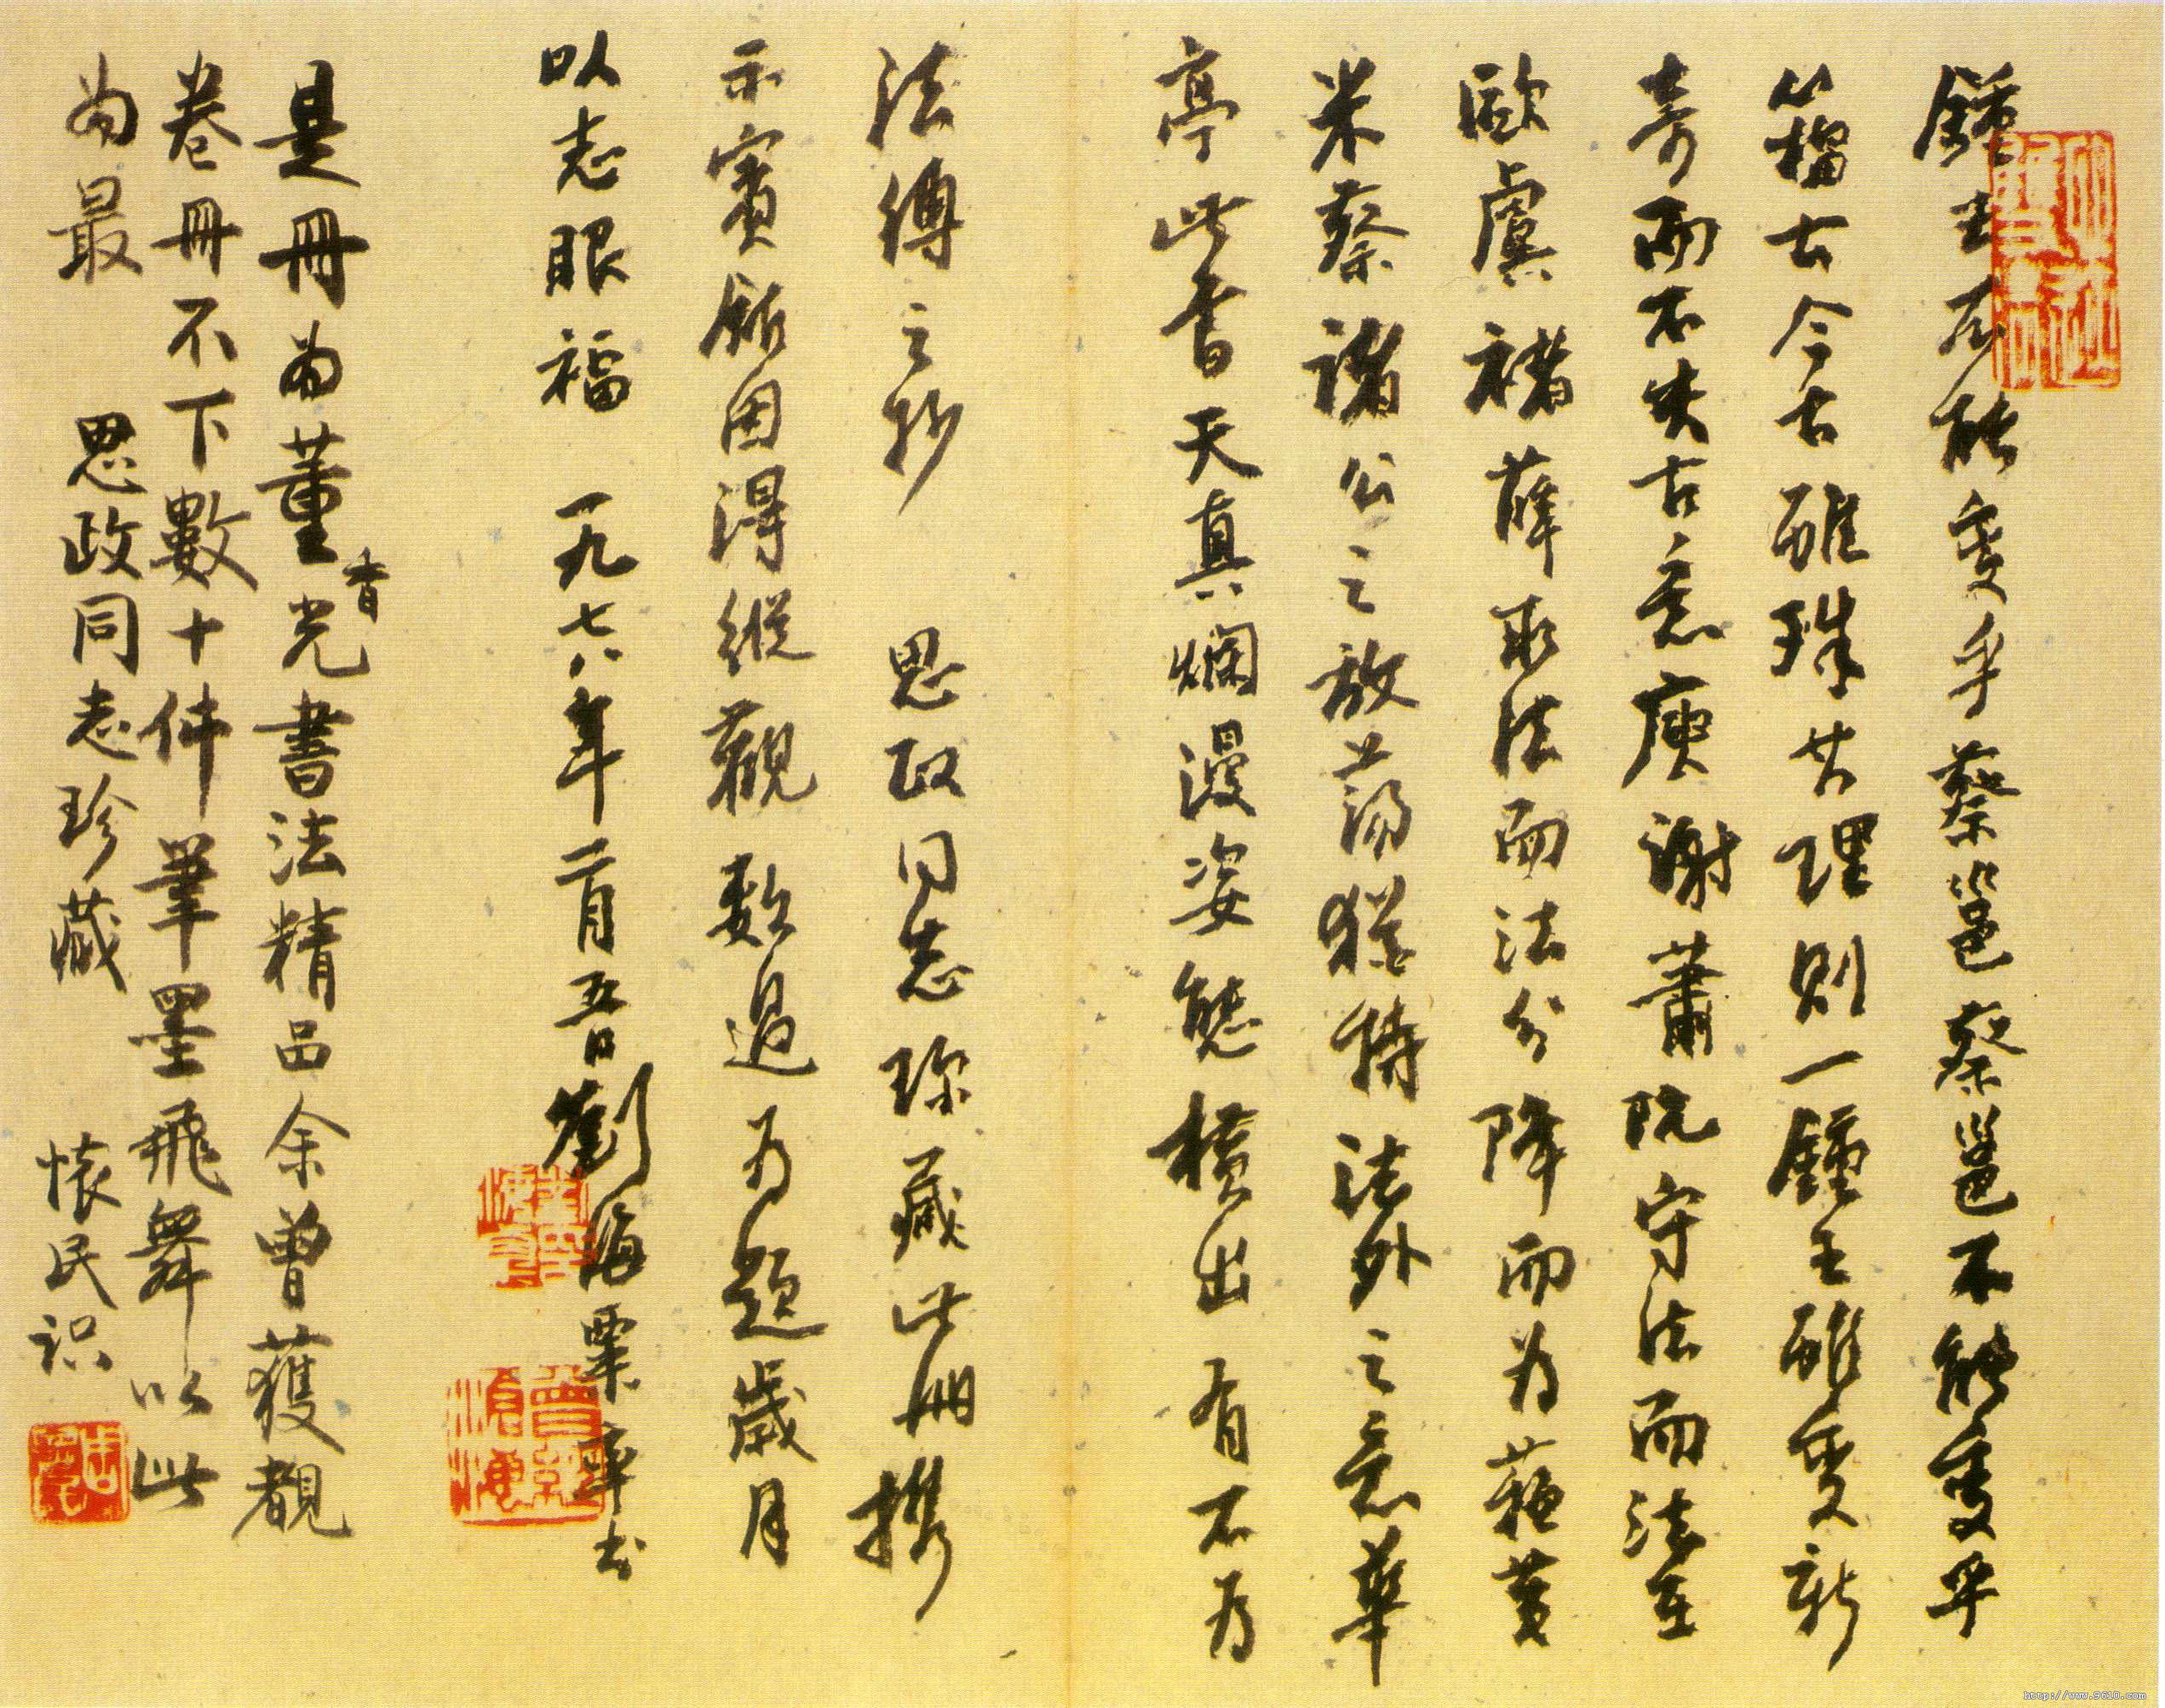 鍾王不能變乎蔡邕蔡邕不能變乎
籀古今古雖殊其理則一鍾王雖變新
奇而不失古意庾謝蕭阮守法而法在
歐虞褚薛取法而法分降而为蘇黃
米蔡諸公之放蕩猶持法外之意華
亭此書天真爛漫姿態橫出有不为
法縛之妙 思政同志珍藏此冊携
示賓館因得縱觀數過为題歲月
以志眼福 一九七八年二月五日劉海粟率书
是冊為董香光書法精品余曾獲覩
卷冊不下數十件筆墨飛舞以此
為最 思政同志珍藏 懷民识
http://www.9610.com